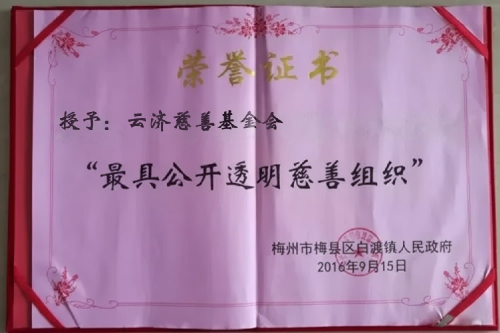 荣誉证书
授予：云济慈善基金会
“最具公开透明慈善组织”
梅州市梅县区白渡镇人民政府
2016年9月15日